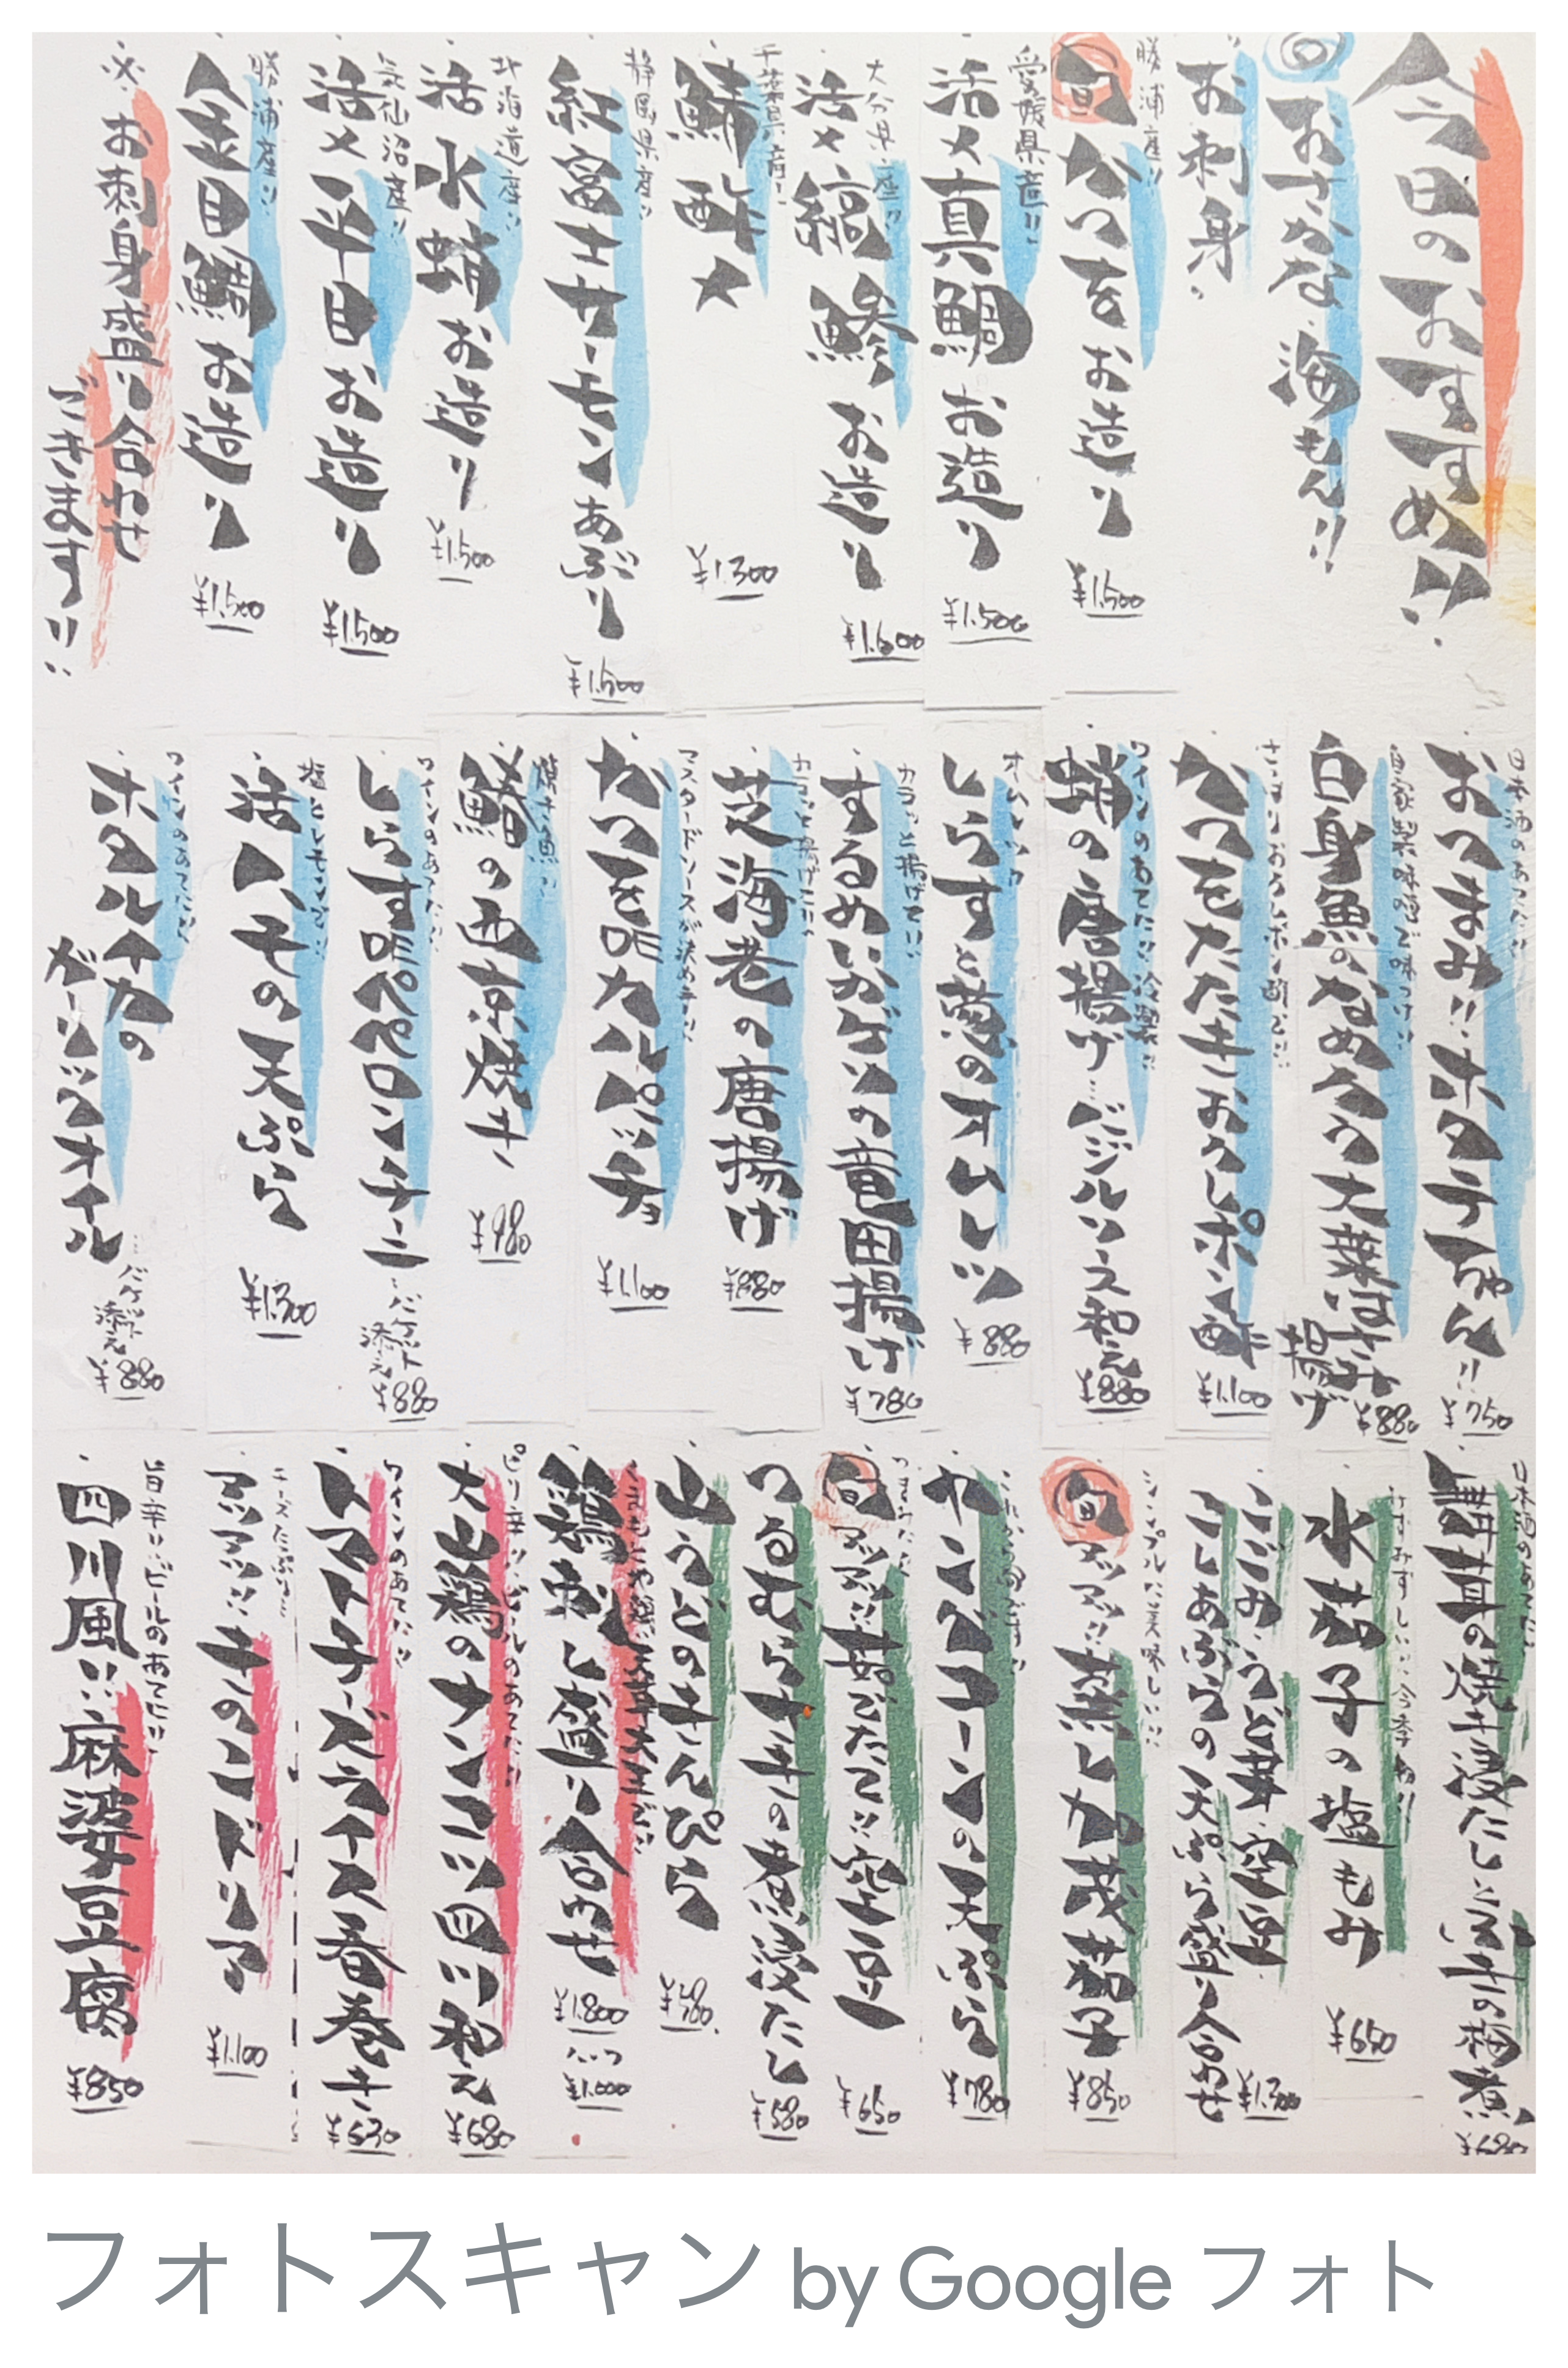 今日のおすすめ!!
おさかな海もん!!
お刺身
勝浦産!!
旬 かつをお造り
¥1.500
愛媛県産!!
活〆真鯛お造り
¥1.500
大分県産!!
活〆縞鯵お造り
¥1.600
千葉県産!
鯖酢〆
¥1.300
静岡県産!!
紅富士サーモンあぶり
¥1.500
北海道産!!
活水蛸お造り
¥1.500
気仙沼産!!
活〆平目お造り
¥1.500
勝浦産!!
金目鯛お造り
¥1.500
※お刺身盛り合わせ
できます!!
日本酒のあてに!!
おつまみ!!ホタテちゃん!!
¥750
自家製味噌で味つけ!!
白身魚のなめろう大葉はさみ
揚げ
¥880
さっぱりおろしポン酢で!!
かつをたたきおろしポン酢
¥1.100
ワインのあてに!!冷製!!
蛸の唐揚げ バジルソース和え
¥880
しらすと葱のオムレツ
¥880
カラッと揚げて!!
するめいかゲソの竜田揚げ
¥780
カラッと揚げて!!
芝海老の唐揚げ
¥880
マスタードソースが決め手!!
かつをDEカルパッチョ
¥1.100
焼き魚!!
鰆の西京焼き
¥980
ワインのあてに!!
しらすDEペペロンチーニ
バケット
添え
¥880
塩とレモンで!!
活ハモの天ぷら
¥1.300
ワインのあてに!!
ホタルイカの
ガーリックオイル
バケット
添え
¥880
日本酒のあてに!!
舞茸の焼き浸し
¥680
みずみずしい!!今季あり!!
水茄子の塩もみ
¥650
こごみ・うど・芽・空豆
こしあぶらの天ぷら盛り合わせ
¥1.300
シンプルに美味しい!!
旬 アツアツ!!蒸し加茂茄子
¥850
これから旬です!!
ヤングコーンの天ぷら
¥780
つまみに!!
旬 アツアツ!!茹でたて!!空豆
¥650
つるむらさきの煮浸たし
¥580
山うどのきんぴら
¥580
鶏刺し盛り合わせ
¥1.800
ハーフ
¥1.000
ピリ辛!!ビールのあてに!!
大山鶏のナンコツ四川和え
¥680
ワインのあてに!!
トマトチーズライス春巻き
¥630
チーズたっぷり!!
アツアツ!!チキンドリア
¥1.100
旨辛!!ビールのあてに!!
四川風!!麻婆豆腐
¥850
フォトスキャン by Google フォト